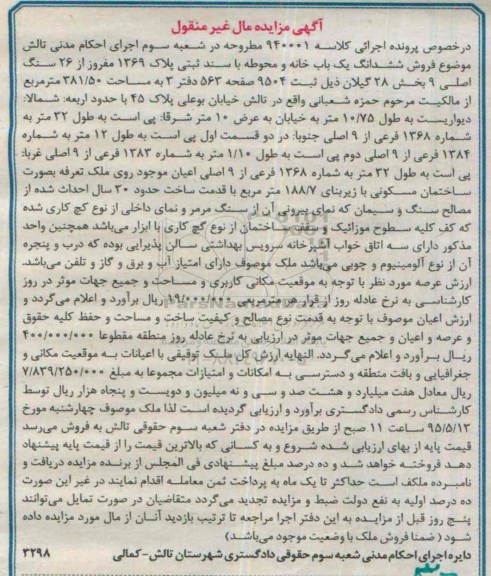 آگهی مزایده مال غیر منقول
درخصوص پرونده اجرائی کلاسه ۹۴۰۰۰۱ مطروحه در شعبه سوم اجرای احکام مدنی تالش
موضوع فروش ششدانگ یک باب خانه و محوطه با سند ثبتی پلاک ۱۳۶۹ مفروز از ۲۶ سنگ
اصلی ۹ بخش ۲۸ گیلان ذیل ثبت ۹۵۰۴ صفحه ۵۶۳ دفتر ۳ به مساحت ۳۸۱/۵۰ مترمربع
از مالکیت مرحوم حمزه شعبانی واقع در تالش خیابان بوعلی پلاک ۴۵ با حدود اربعه: شمالا:
دیواریست به طول ۱۰/۷۵ متر به خیابان به عرض ۱۰ متر شرقا: پی است به طول ۳۲ متر به
شماره ۱۳۶۸ فرعی از ۹ اصلی جنوبا: در دو قسمت اول پی است به طول ۱۲ متر به شماره
۱۳۸۴ فرعی از ۹ اصلی دوم پی است به طول ۱/۱۰ متر به شماره ۱۳۸۳ فرعی از ۹ اصلی غربا:
پی است به طول ۳۲ متر به شماره ۱۳۶۸ فرعی از ۹ اصلی اعیان موجود روی ملک تعرفه بصورت
ساختمان مسکونی با زیربنای ۱۸۸/۷ متر مربع با قدمت ساخت حدود ۳۰ سال احداث شده از
مصالح سنگ و سیمان که نمای بیرونی آن از سنگ مرمر و نمای داخلی از نوع کچ کاری شده
که کف کلیه سطوح موزائیک و سقف ساختمان از نوع کچ کاری با ابزار می‌باشد همچنین واحد
مذکور دارای سه اتاق خواب آشپزخانه سرویس بهداشتی سالن پذیرایی بوده که درب و پنجره
آن از نوع آلومینیوم و چوبی می‌باشد ملک موصوف دارای امتیاز آب و برق و گاز و تلفن می‌باشد.
ارزش عرصه مورد نظر با توجه به موقعیت مکانی کاربری و مساحت و جمیع جهات موثر در روز
کارشناسی به نرخ عادله روز از قرار هر مترمربعی ریال برآورد و اعلام می‌گردد و
ارزش اعیان موصوف با توجه به قدمت نوع مصالح و کیفیت ساخت و مساحت و حفظ کلیه حقوق
و عرصه و اعیان و جمیع جهات موثر در ارزیابی به نرخ عادله روز منطقه مقطوعا ۴۰۰/۰۰۰/۰۰۰
ریال برآورد و اعلام می‌گردد. النهایه ارزش کل ملک توقیفی با اعیانات به موقعیت مکانی و
جغرافیایی و بافت منطقه و دسترسی به امکانات و امتیازات مجموعا به مبلغ ۷/۸۳۹/۲۵۰/۰۰۰
ریال معادل هفت میلیارد و هشت صد و سی و نه میلیون و دویست و پنجاه هزار ریال توسط
کارشناس رسمی دادگستری برآورد و ارزیابی گردیده است لذا ملک موصوف چهارشنبه مورخ
۹۵/۵/۱۳ ساعت ۱۱ صبح از طریق مزایده در دفتر شعبه سوم حقوقی تالش به فروش می‌رسد
قیمت پایه از بهای ارزیابی شده شروع و به کسانی که بالاترین قیمت را از قیمت پایه پیشنهاد
دهد فروخته خواهد شد و ده درصد مبلغ پیشنهادی فی المجلس از برنده مزایده دریافت و
نامبرده ملکف است حداکثر تا یک ماه به پرداخت ثمن معامله اقدام نمایند در غیر این صورت
ده درصد اولیه به نفع دولت ضبط و مزایده تجدید می‌گردد متقاضیان در صورت تمایل می‌توانند
پنج روز قبل از مزایده به این دفتر اجرا مراجعه تا ترتیب بازدید آنان از مال مورد مزایده داده
شود (ضمنا فروش ملک با وضعیت موجود می‌باشد)
دایره اجرای احکام مدنی شعبه سوم حقوقی دادگستری شهرستان تالش-کمالی ۳۲۹۸